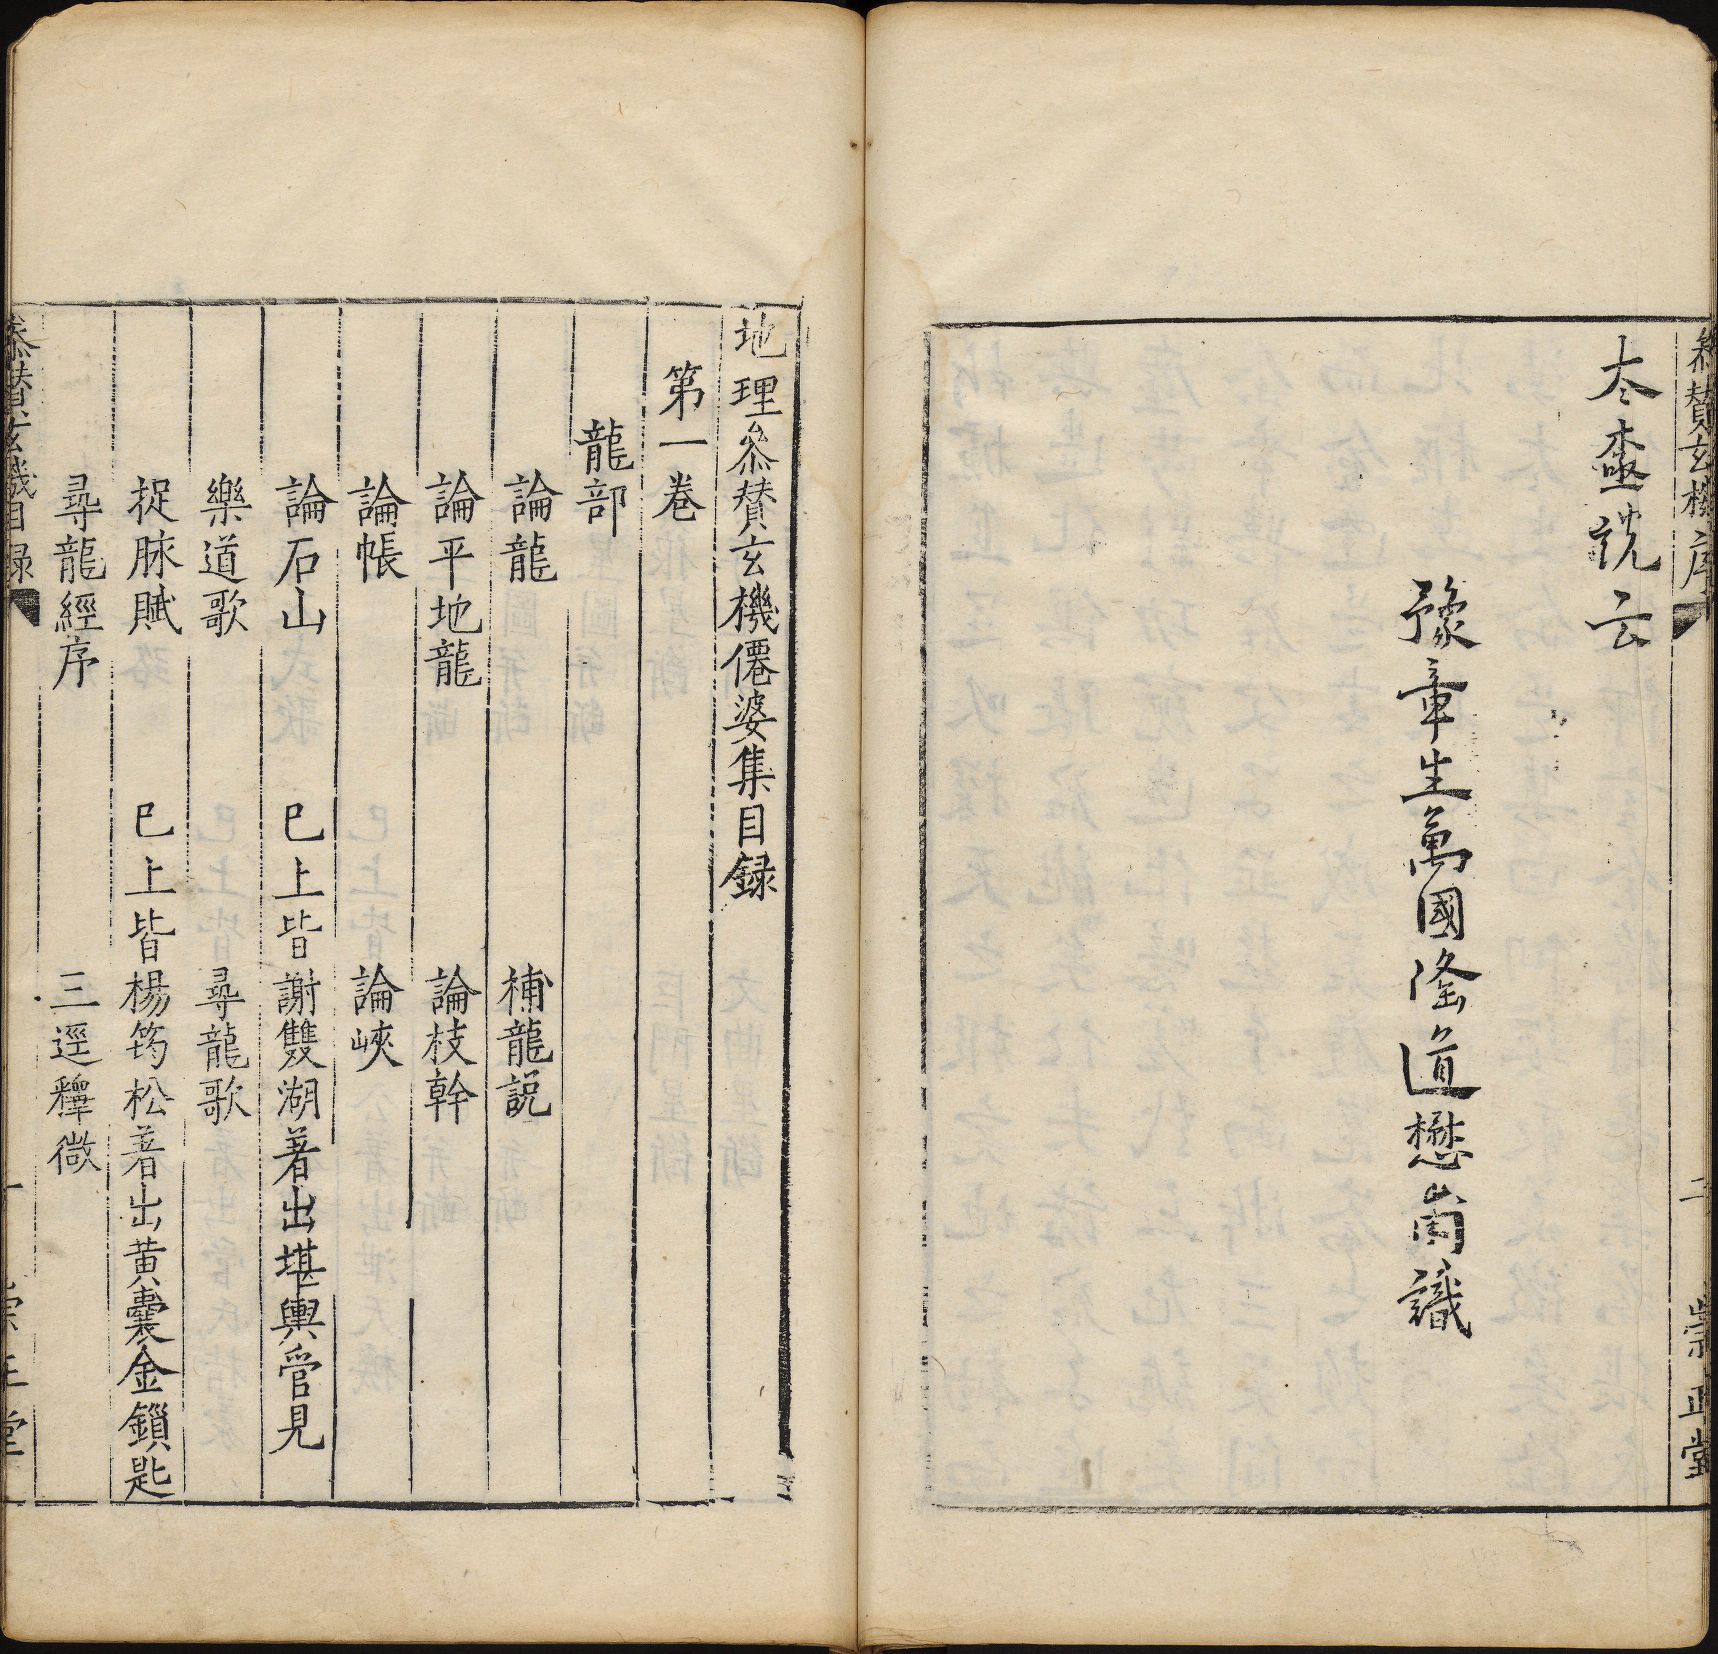 叅贊玄機序 二 崇正堂
夲亟説云
豫章生萬國隆道懋尚識
地理叅賛玄機僊婆集目録
第一卷
龍部
論龍 補龍説
論平地龍 論枝幹
論帳 論峽
論石山 巳上皆謝雙湖著出堪輿管見
樂道歌 尋龍歌
捉脉賦 巳上皆楊筠松著出黄囊金鎖匙
尋龍經序 三逕釋微
叅賛玄機目録 一 崇正堂